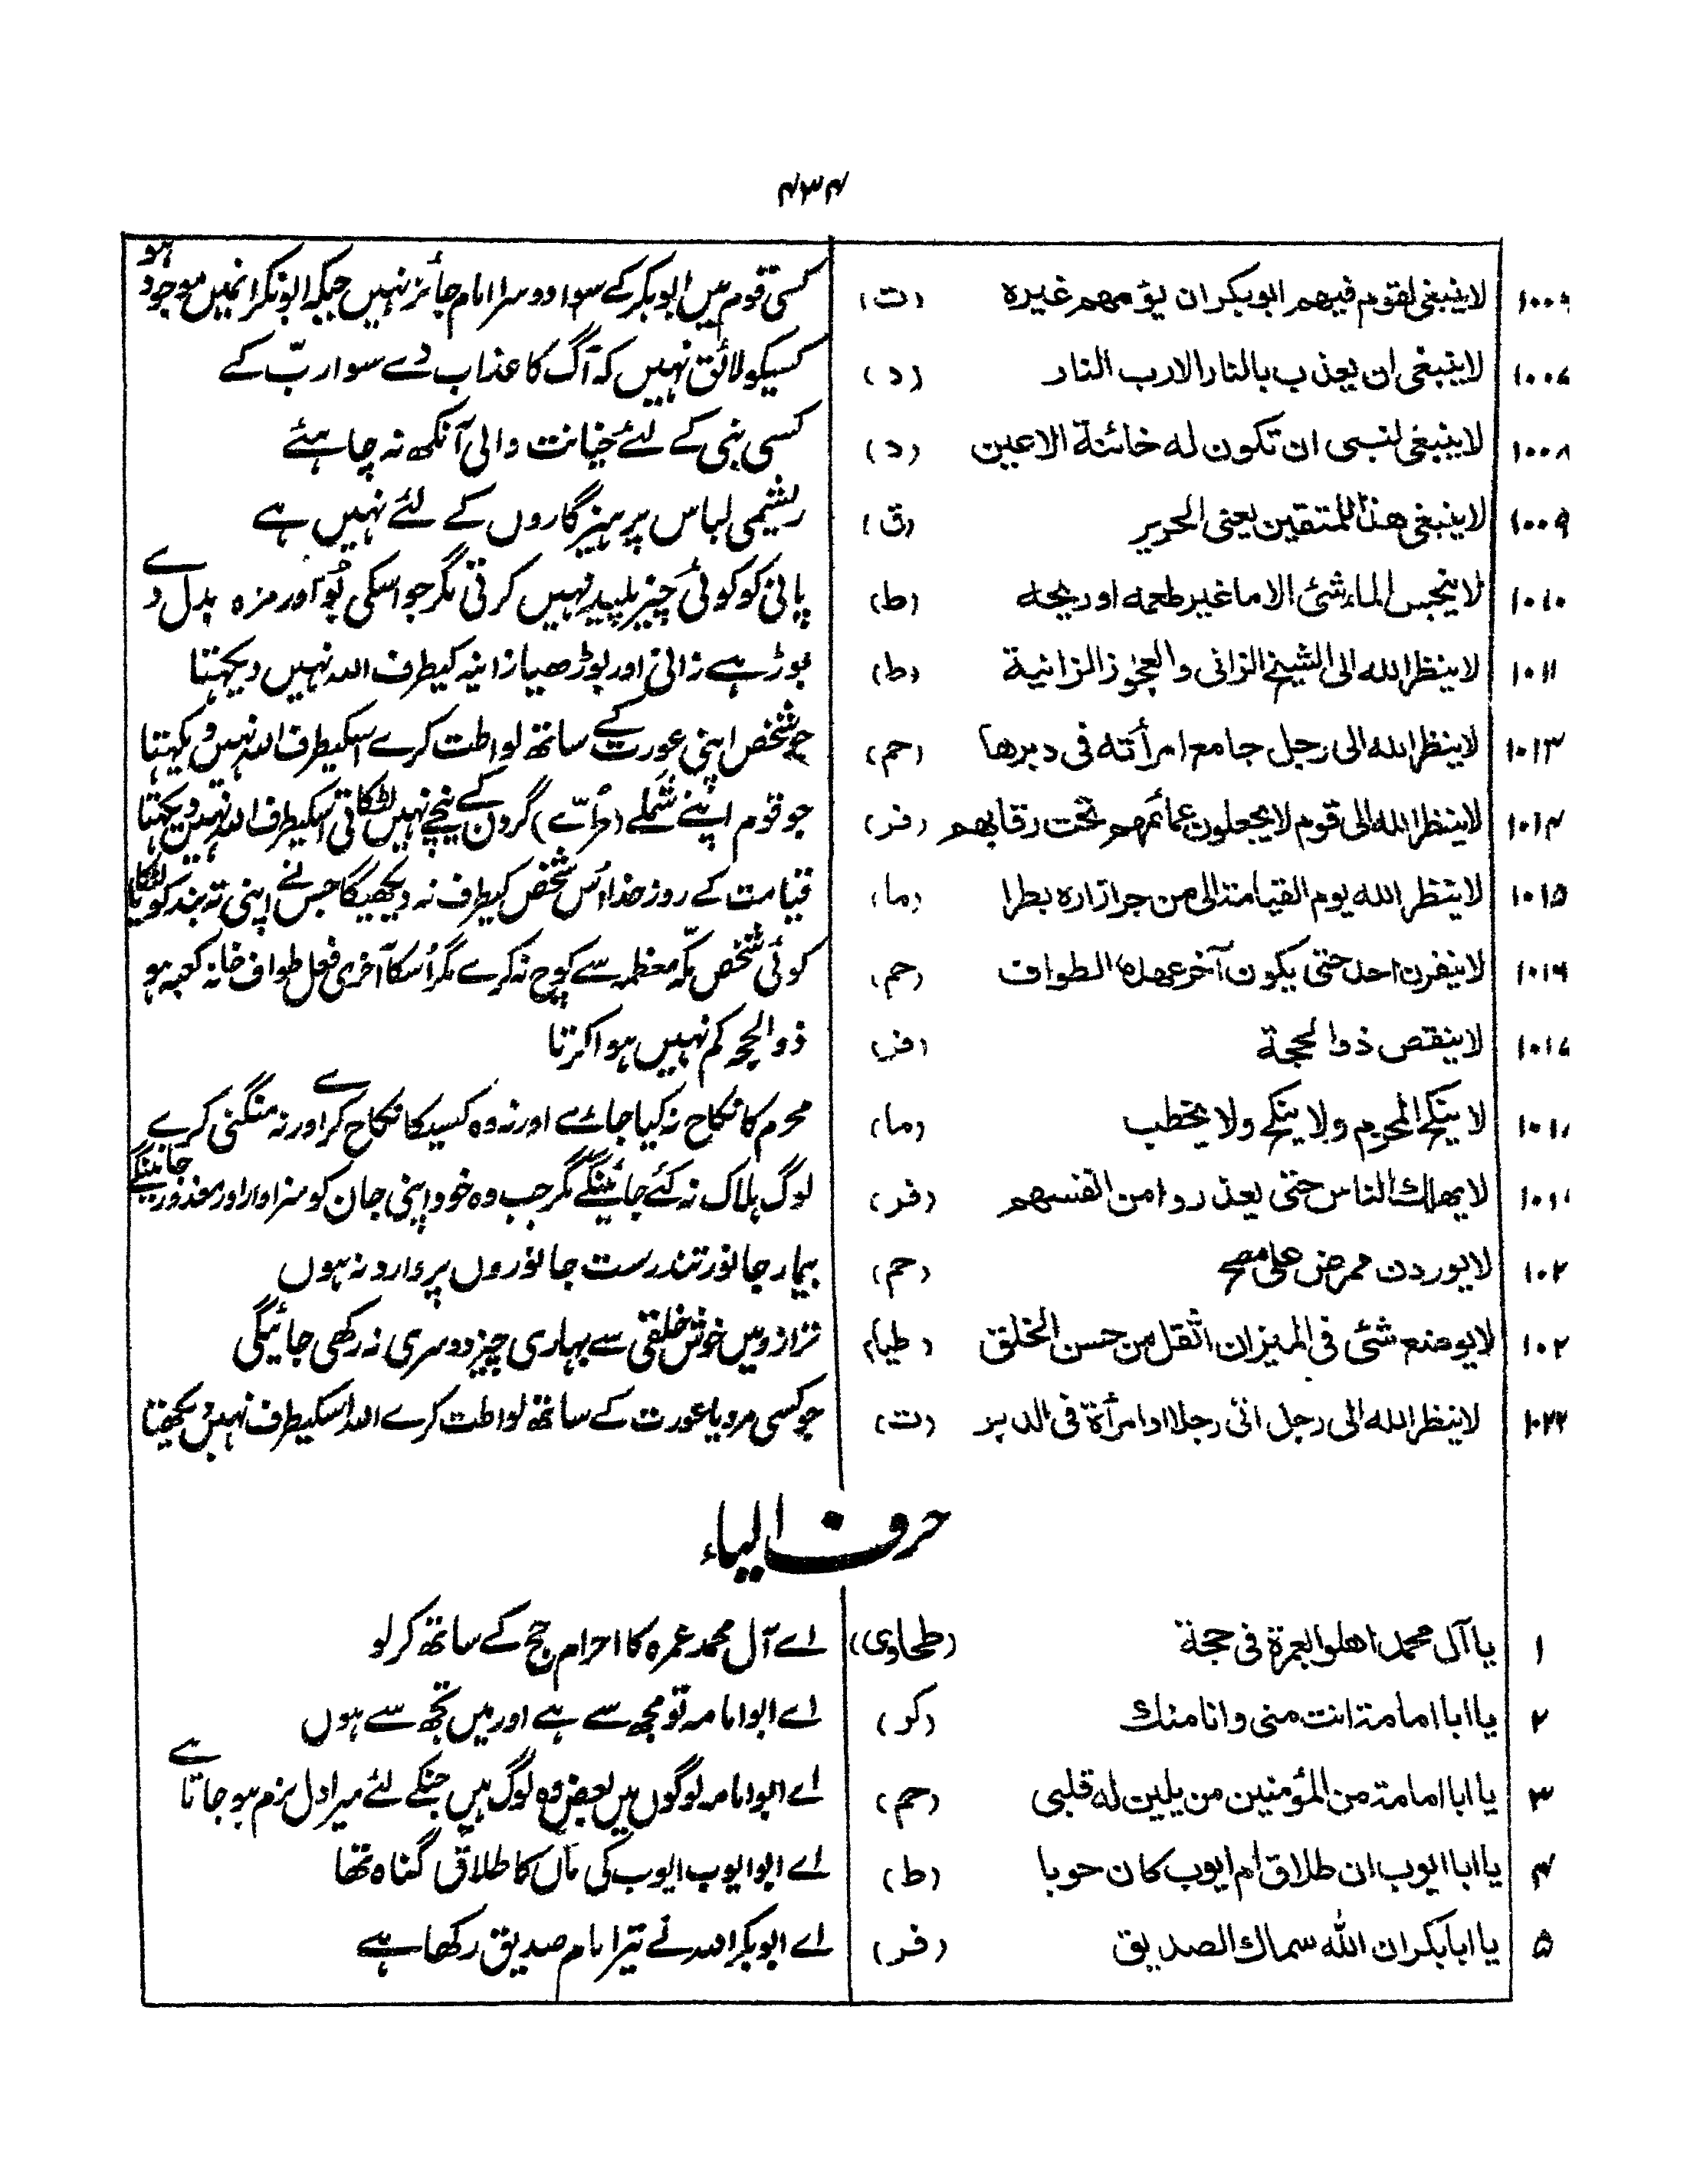 ۴۳۴
۱۰۰۶ لاينبغى لقوم فيهم ابوبكر ان يؤمهم غيره (ت) کسی قوم میں ابوبکر کے سوا دوسرا امام جائز نہیں جبکہ ابوبکر انمیں موجود ہو
۱۰۰۷ لاينبغى ان يعذب بالنار الارب النار (د) کسیکو لائق نہیں کہ آگ کا عذاب دے سوا ربّ کے
۱۰۰۸ لاينبغى لنبى ان تكون له خائنة الاعين (د) کسی نبی کے لئے خیانت والی آنکھ نہ چاہئے
۱۰۰۹ لاينبغى هذا للمتقين يعنى الحرير (ق) ریشمی لباس پرہیزگاروں کے لئے نہیں ہے
۱۰۱۰ لاينجس الماء شئ الا ما غير طعمه او ريحه (ط) پانی کو کوئی چیز پلید نہیں کرتی مگر جو اسکی بُو اور مزہ بدل دے
۱۰۱۱ لاينظر الله الى الشيخ الزانى والعجوز الزانية (ط) بوڑہے زانی اور بوڑھیا زانیہ کیطرف اللہ نہیں دیکہتا
۱۰۱۳ لاينظر الله الى رجل جامع امرأته فى دبرها (حم) جو شخص اپنی عورت کے ساتھ لواطت کرے اسکیطرف اللہ نہیں دیکہتا
۱۰۱۴ لاينظر الله الى قوم لا يجعلون عمائمهم تحت رقابهم (فر) جو قوم اپنے شملے گردن کے نیچے نہیں لٹکاتی اسکیطرف اللہ نہیں دیکہتا
۱۰۱۵ لاينظر الله يوم القيامة الى من جر ازاره بطرا (ما) قیامت کے روز خدا اُس شخص کیطرف نہ دیکھیگا جس نے اپنی تہ بند کو لٹکایا
۱۰۱۶ لاينفرن احد حتى يكون آخر عهده الطواف (حم) کوئی شخص مکّہ معظمہ سے کوچ نہ کرے مگر اُسکا آخری فعل طواف خانہ کعبہ ہو
۱۰۱۷ لاينقص ذوالحجة (فر) ذوالحجہ کم نہیں ہوا کرتا
۱۰۱۸ لاينكح المحرم ولا ينكح ولا يخطب (ما) محرم کا نکاح نہ کیا جائے اور نہ وہ کسیکا نکاح کرے اور نہ منگنی کرے
۱۰۱ لايهلك الناس حتى يعذروا من انفسهم (فر) لوگ ہلاک نہ کئے جائینگے مگر جب وہ خود اپنی جان کو سزاوار اور معذور جانینگے
۱۰۲ لايوردن ممرض على مصح (حم) بیمار جانور تندرست جانوروں پر وارد نہ ہوں
۱۰۲ لايوضع شئ فى الميزان اثقل من حسن الخلق ترازو میں خوش خلقی سے بہاری چیز دوسری نہ رکھی جائیگی
۱۰۲۲ لاينظر الله الى رجل اتى رجلا او امرأة فى الدبر (ت) جو کسی مرد یا عورت کے ساتھ لواطت کرے اللہ اسکیطرف نہیں دیکھتا
حرف الیاء
۱ يا آل محمد اهلوا بعمرة فى حجة (طحاوى) اے آل محمد عمرہ کا احرام حج کے ساتھ کرلو
۲ يا ابا امامة انت منى وانا منك (كر) اے ابو امامہ تو مجھ سے ہے اور میں تجھ سے ہوں
۳ يا ابا امامة من المؤمنين من يلين له قلبى (حم) اے ابو امامہ لوگوں میں بعض وہ لوگ ہیں جنکے لئے میرا دل نرم ہو جاتا ہے
۴ يا ابا ايوب ان طلاق ام ايوب كان حوبا (ط) اے ابو ایوب ایوب کی ماں کا طلاق گناہ تھا
۵ يا ابا بكر ان الله سماك الصديق (فر) اے ابوبکر اللہ نے تیرا نام صدیق رکھا ہے